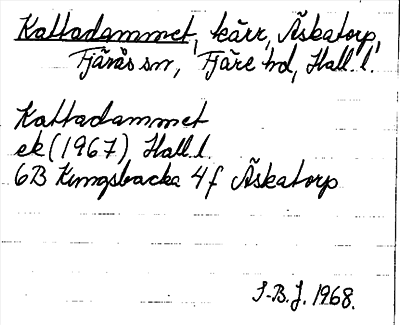 Kattadammet, kärr, Äskatorp,
Fjärås sn, Fjäre hd, Hall. l.
Kattadammet
ek (1967) Hall. l.
6B Kungsbacka 4f Äskatorp
S-B. J. 1968.